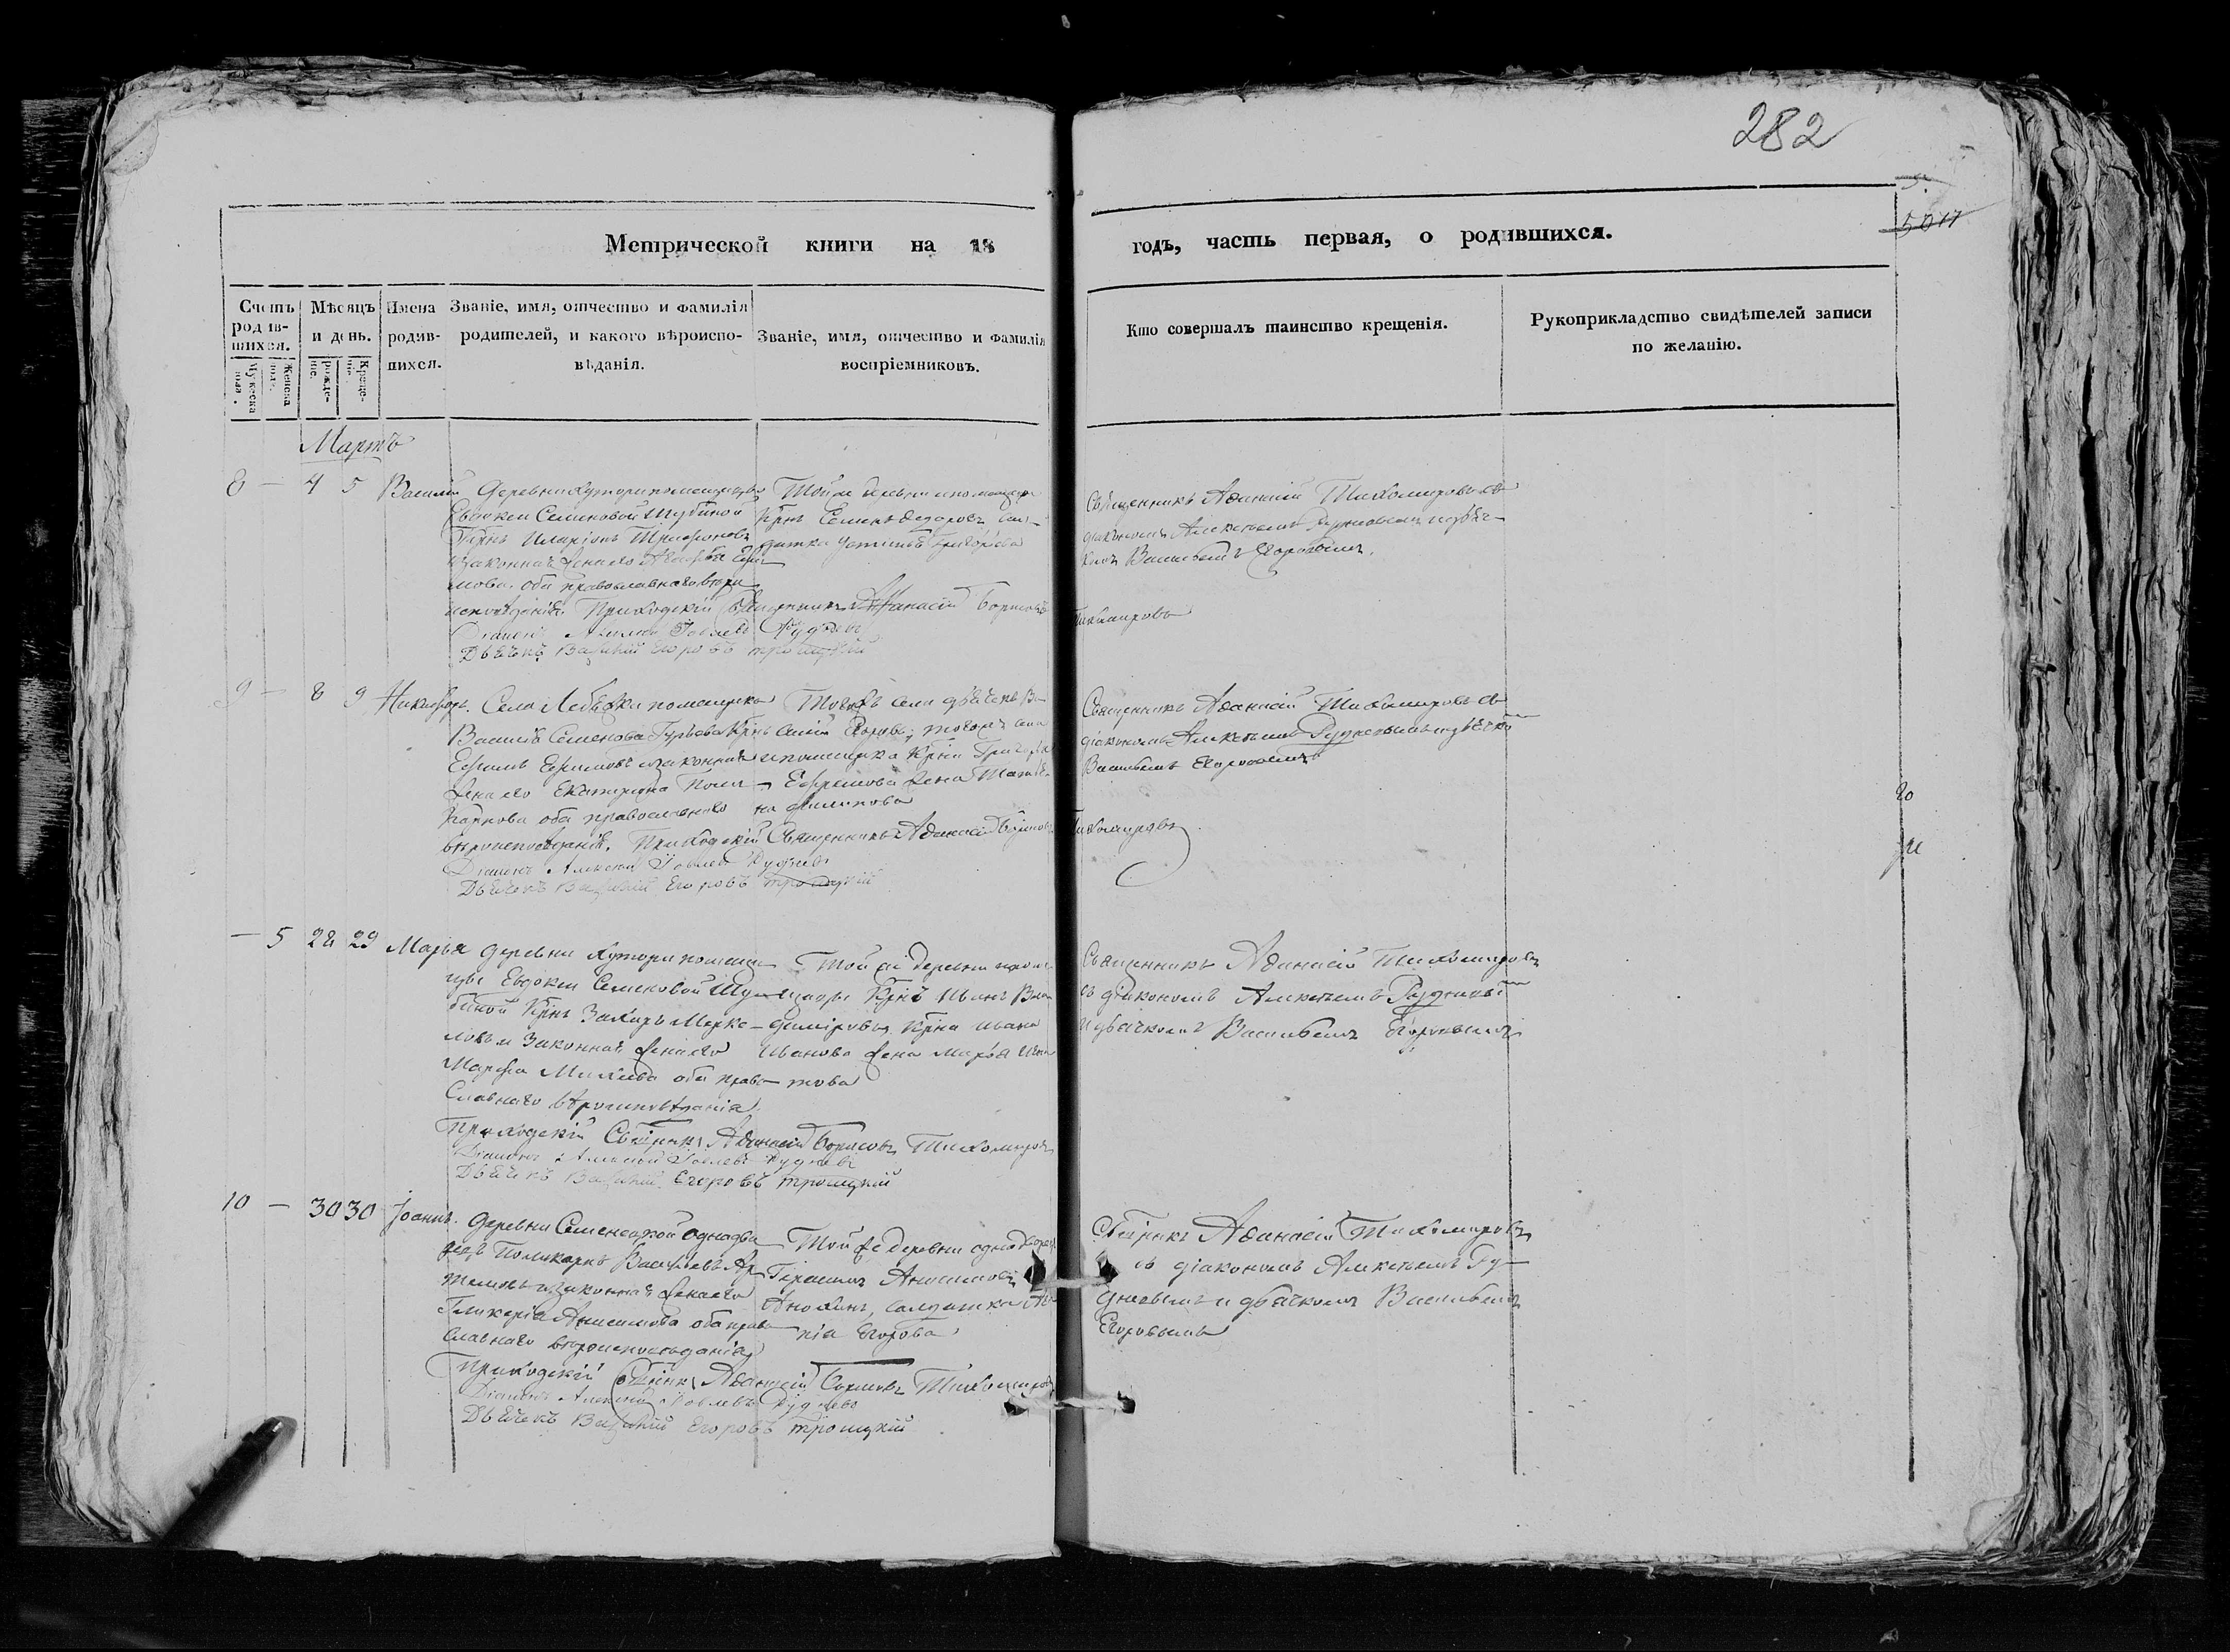 282
5017
Метрической книги на 18
годъ, часть первая, о родившихся.
Счетъ родив-шихся.
Мужеска пола.
Женска пола.
Мѣсяцъ и день.
рожде-ніе.
Креще-ніе.
Имена родив-шихся.
Званіе, имя, отчество и фамилія
родителей, и какого вѣроиспо-
вѣданія.
Званіе, имя, отчество и фамилія
воспріемниковъ.
Кто совершалъ таинство крещенія.
Рукоприкладство свидѣтелей записи
по желанію.
Мартъ
8 — 4 5 Василій
деревни Хутори помещицы
Евдокеи Семеновой Шубиной
Крнъ Иларіонъ
законная жена его
мова. оба православнаго вѣро
исповѣданія. Приходскій Священникъ Афанасій Борисовъ Тихомировъ
Діаконъ Алексей Іовлевъ Рудневъ
Дьячекъ Василій Егоровъ Троицкій
Той же деревни и помещицы
Крнъ Семенъ Федоровъ, сол-
датка Устинья Григорьева
Священникъ Афанасій Тихомировъ съ
діакономъ Алексеемъ Рудневымъ и дьяч-
комъ Васильемъ Егоровымъ.
9 — 8 9 Никифоръ.
Села Лебяжки помещика
Василья Семенова Гурьева Крнъ
Ефимъ Ефимовъ и законная
жена его Екатерина Поли-
карпова оба православнаго
вѣроисповѣданія. Приходскій Священникъ Афанасій Борисовъ Тихомировъ
Діаконъ Алексей Іовлевъ Рудневъ
Дьячекъ Василій Егоровъ Троицкій
Тогожъ села дьячекъ Ва-
силій Егоровъ, тогожъ села
и помещика Крна Григорья
Ефремова жена Татья-
на Филипова
Священникъ Афанасій Тихомировъ съ
діакономъ Алексеемъ Рудневымъ и дьячко
Васильемъ Егоровымъ
— 5 28 29 Марья
деревни Хутори помещи-
цы Евдокеи Семеновой Шу-
биной Крнъ Захаръ Мерке-
ловъ и законная жена его
Марфа Михеева оба право-
славнаго вѣроисповѣданія.
Приходскій Свщнникъ Афанасій Борисовъ Тихомировъ
Діаконъ Алексей Іовлевъ Рудневъ
Дьячекъ Василій Егоровъ Троицкій
Той же деревни и поме-
щицы Крнъ Иванъ Вла-
димировъ, Крна Ивана
Иванова жена Марья
това
Священникъ Афанасій Тихомировъ
съ діакономъ Алексеемъ Рудневы
и дьячкомъ Васильемъ Егоровымъ
10 — 30 30 Іоаннъ.
деревни Семенецкой однодво-
рецъ Поликарпъ Васильевъ Ар-
темовъ и законная жена его
Гликерія Анисимова оба право-
славнаго вѣроисповѣданія
Приходскій Свщнникъ Афанасій Борисовъ Тихомировъ
Діаконъ Алексей Іовлевъ Рудневъ
Дьячекъ Василій Егоровъ Троицкій
Той же деревни однодворецъ
Герасимъ Анисимовъ
Анохинъ, солдатка
пія Егорова
Свщнникъ Афанасій Тихомировъ
съ діакономъ Алексеемъ Ру-
дневымъ и дьячкомъ Васильемъ
Егоровымъ